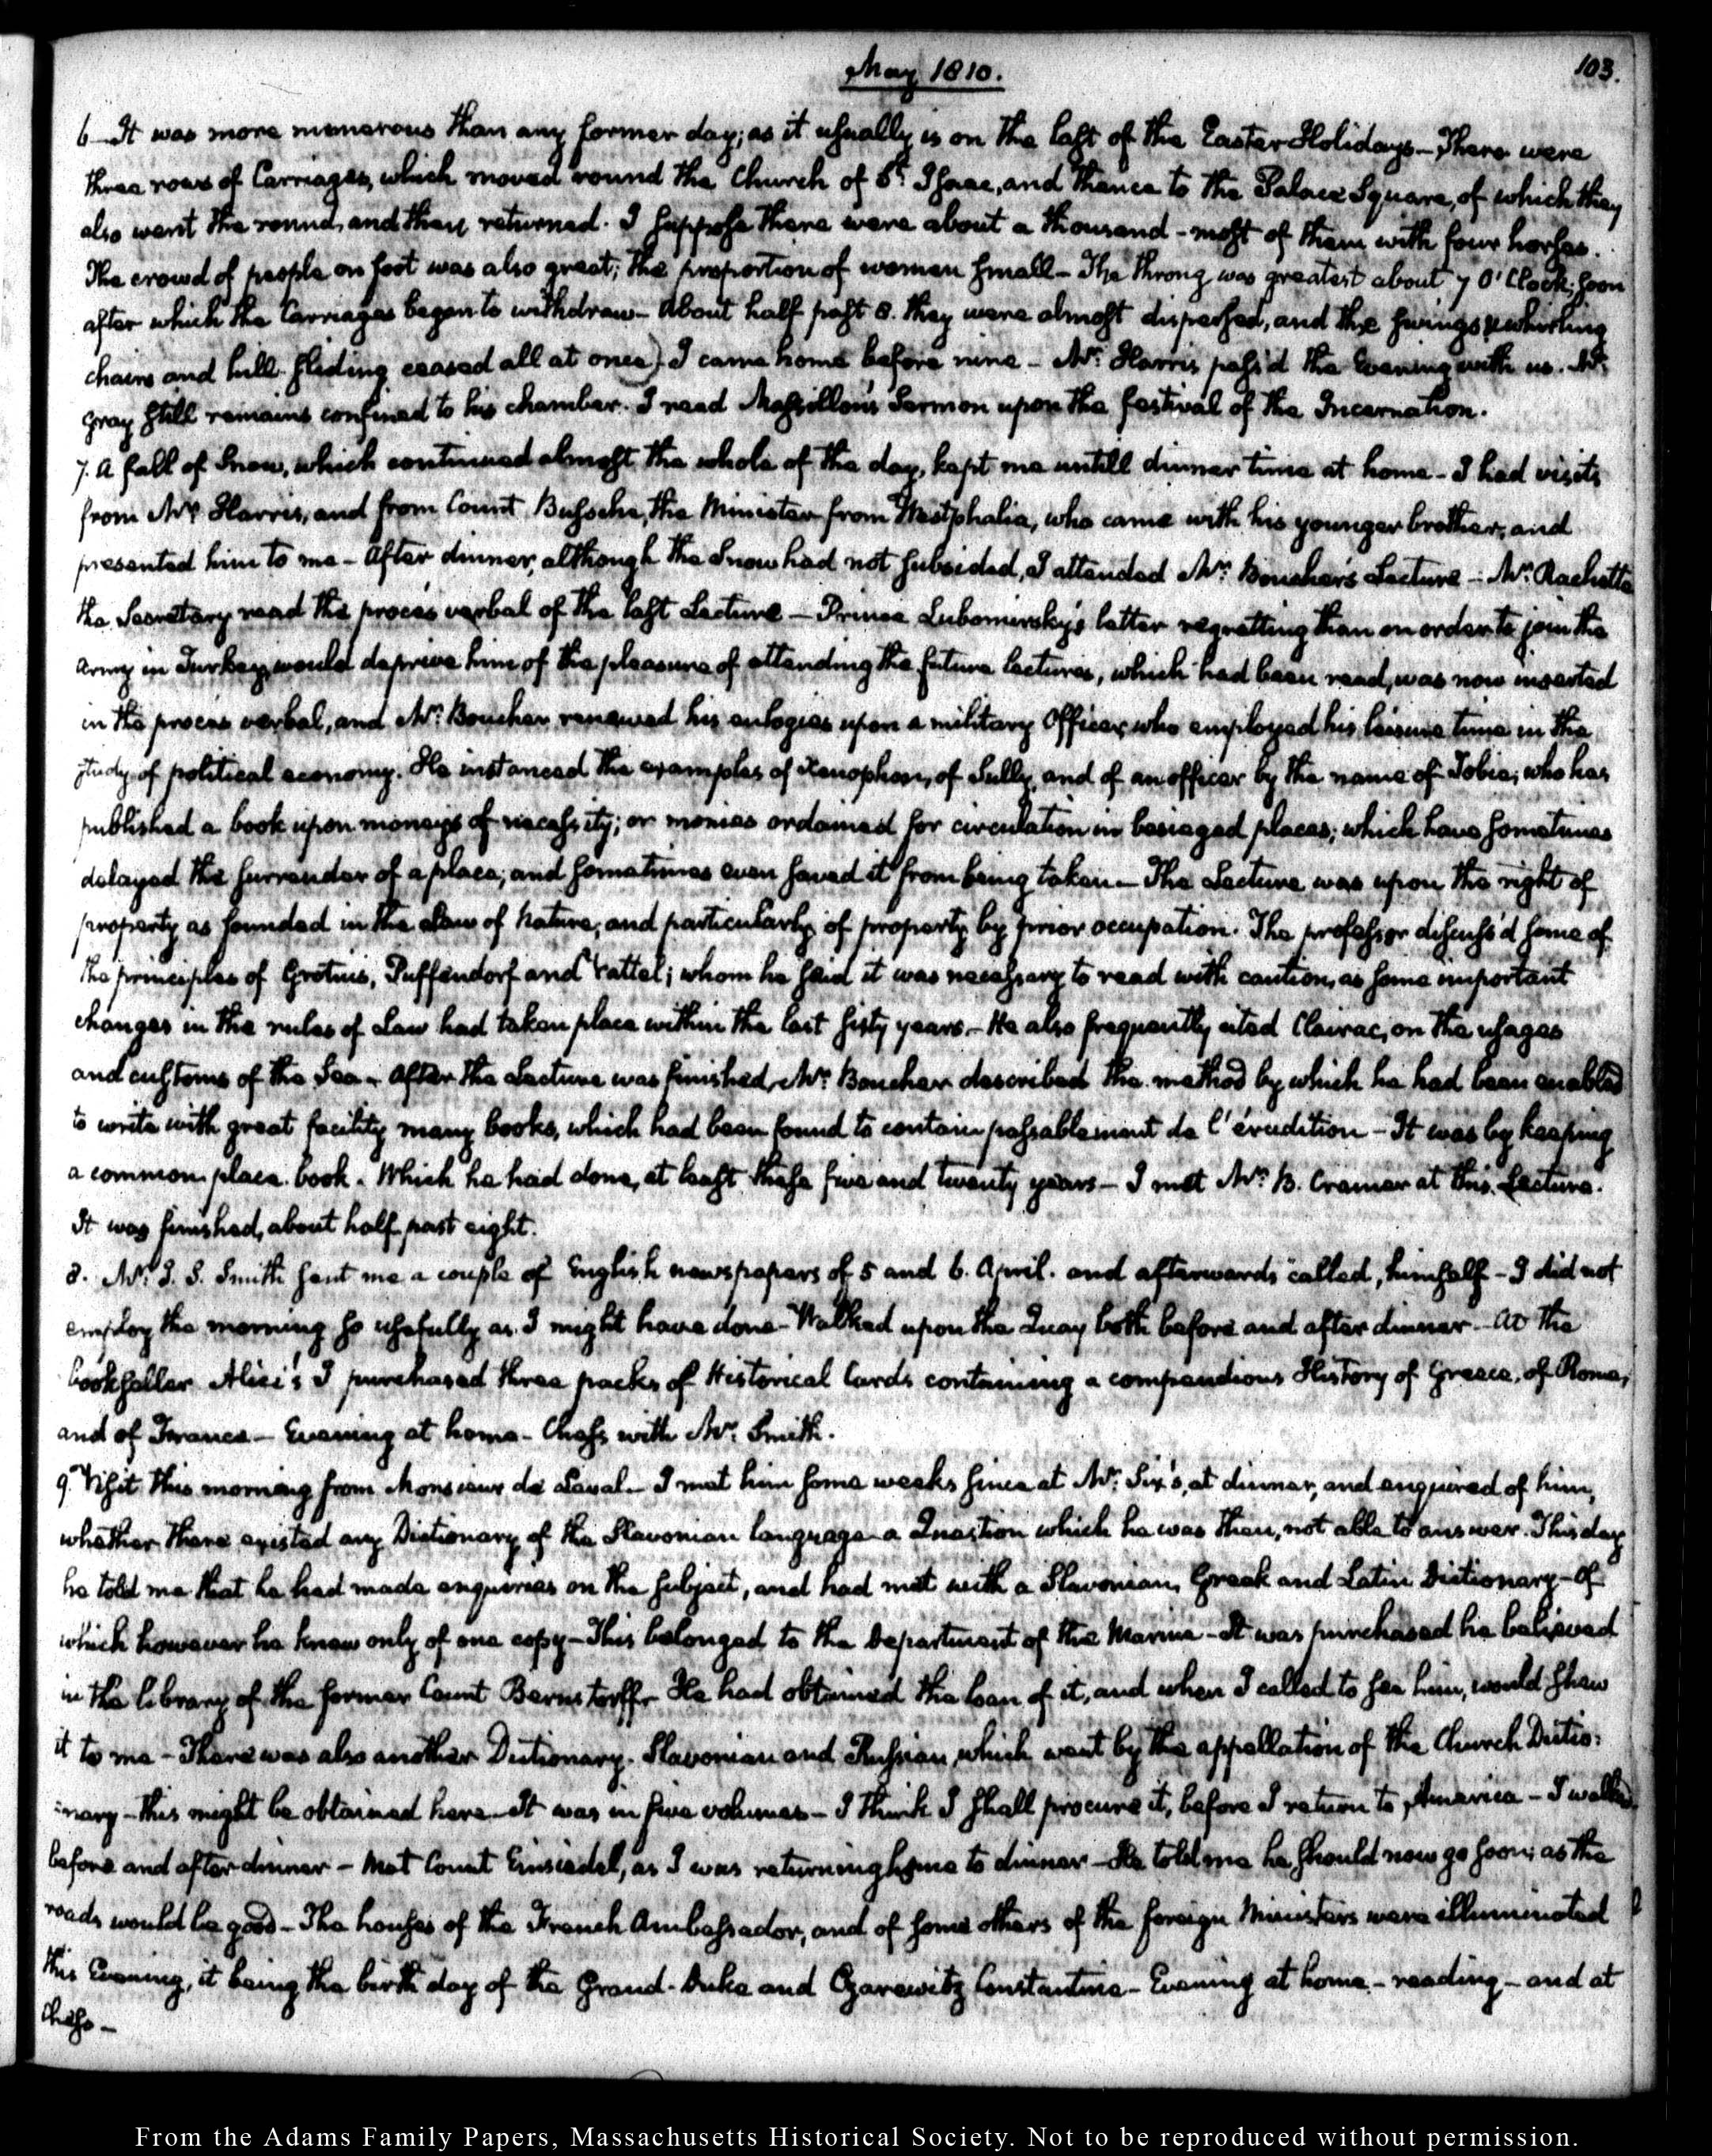 May 1810.
103.
6 – It was more numerous than any former day; as it usually is on the last of the Easter Holidays – There were
three rows of Carriages, which moved round the Church of St. Isaac, and thence to the Palace Square, of which they
also went the round, and then returned. I suppose there were about a thousand – most of them with four horses.
The crowd of people on foot was also great; the proportion of women small – The throng was greatest about 7 O'Clock; soon
after which the Carriages began to withdraw – About half past 8. they were almost dispersed, and the swings, whirling
chairs and hill sliding ceased all at once) I came home before nine – Mr. Harris pass'd the Evening with us. Mr.
Gray still remains confined to his chamber. I read Massillon's Sermon upon the festival of the Incarnation.
7. A fall of Snow, which continued almost the whole of the day, kept me untill dinner time at home – I had visits
from Mr. Harris, and from Count Bussche, the Minister from Westphalia, who came with his younger brother, and
presented him to me – After dinner, although the Snow had not subsided, I attended Mr. Boucher's Lecture – Mr. Rachette
the Secretary read the procès verbal of the last Lecture – Prince Lubomirsky's letter regretting than an order to join the
Army in Turkey, would deprive him of the pleasure of attending the future lectures, which had been read, was now inserted
in the procès verbal, and Mr. Boucher renewed his eulogies upon a military Officer, who employed his leisure time in the
study of political economy. He instanced the examples of Xenophon, of Sully, and of an officer by the name of Tobie, who has
published a book upon moneys of necessity; or monies ordained for circulation in besieged places; which have sometimes
delayed the surrender of a place; and sometimes even saved it from being taken – The Lecture was upon the right of
property as founded in the Law of Nature, and particularly of property by prior occupation. The professor discuss'd some of
the principles of Grotius, Puffendorf and Vattel; whom he said it was necessary to read with caution, as some important
changes in the rules of Law had taken place within the last fifty years – He also frequently cited Clairac, on the usages
and customs of the Sea – After the Lecture was finished, Mr. Boucher described the method by which he had been enabled
to write with great facility many books, which had been found to contain passablement de l'érudition – It was by keeping
a common place book. Which he had done, at least these five and twenty years – I met Mr. B. Cramer at this Lecture.
It was finished, about half past eight.
8. Mr. J. S. Smith sent me a couple of English newspapers of 5 and 6. April. and afterwards called, himself – I did not
employ the morning so usefully as I might have done – Walked upon the Quay both before and after dinner – At the
bookseller Alici's I purchased three packs of Historical Cards containing a compendious History of Greece, of Rome,
and of France – Evening at home – Chess with Mr. Smith.
9. Visit this morning from Monsieur de Laval – I met him some weeks since at Mr. Six's, at dinner, and enquired of him,
whether there existed any Dictionary of the Slavonian language – a Question which he was then, not able to answer. This day
he told me that he had made enquiries on the subject, and had met with a Slavonian, Greek and Latin Dictionary – of
which however he knew only of one copy – This belonged to the Department of the Marine – It was purchased he believed
in the library of the former Count Bernstorff – He had obtained the loan of it, and when I called to see him, would shew
it to me – There was also another Dictionary. Slavonian and Russian, which went by the appellation of the Church Dictio:
:nary – this might be obtained here – It was in five volumes – I think I shall procure it, before I return to America – I walked
before and after dinner – Met Count Einsiedel, as I was returning home to dinner – He told me he should now go soon; as the
roads would be good – The houses of the French Ambassador, and of some others of the foreign Ministers were illuminated
this Evening, it being the birth day of the Grand-Duke and Czarewitz Constantine – Evening at home – reading – and at
Chess –
From the Adams Family Papers, Massachusetts Historical Society. Not to be reproduced without permission.